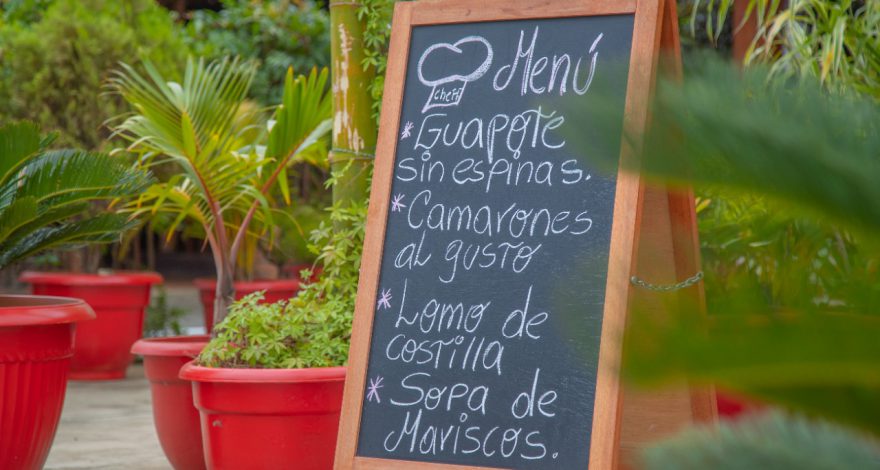 Menú
chef
* Guapote
sin espinas.
* Camarones
al gusto
* Lomo de
costilla
* Sopa de
Mariscos.